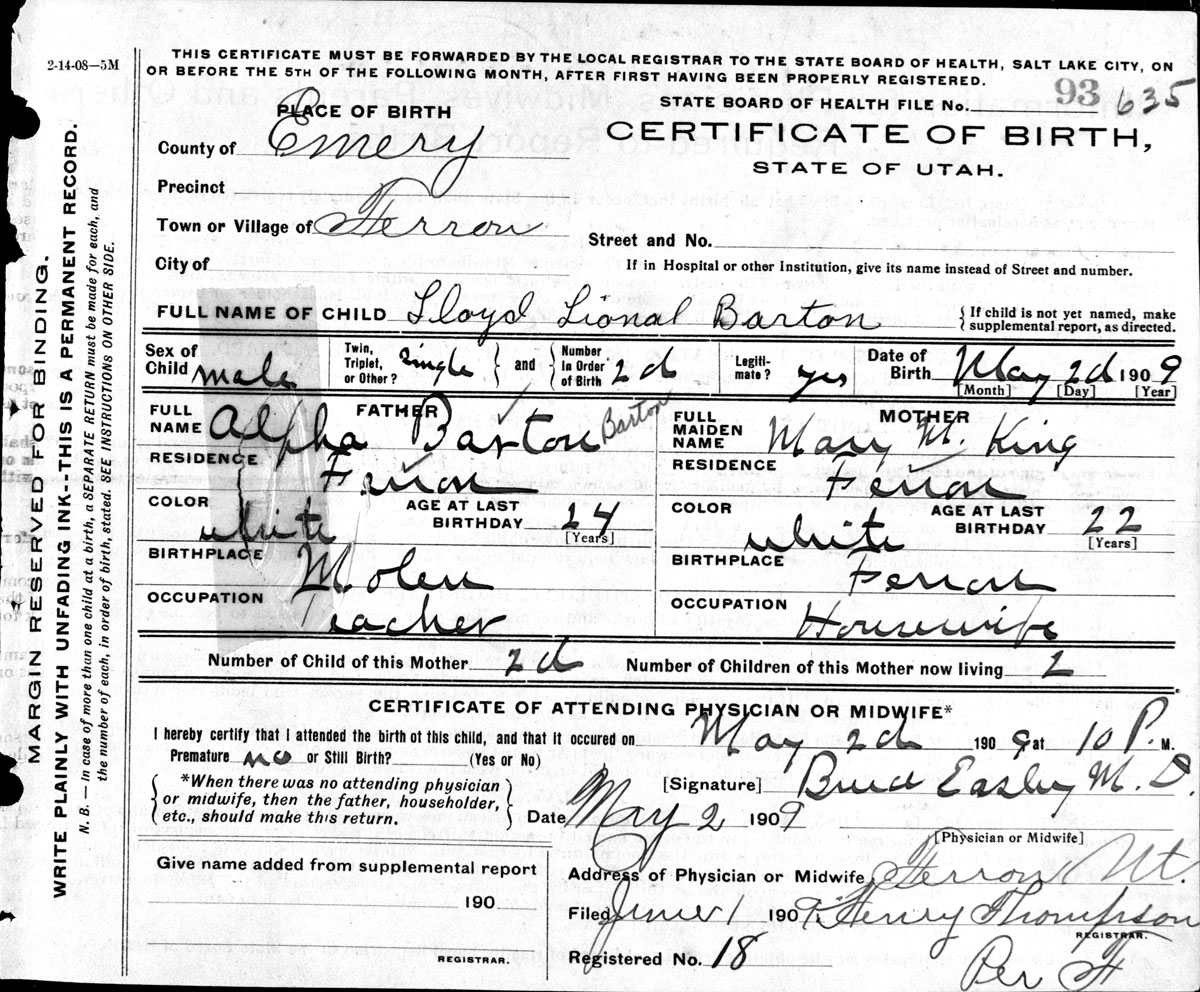 2-14-08—5M
THIS CERTIFICATE MUST BE FORWARDED BY THE LOCAL REGISTRAR TO THE STATE BOARD OF HEALTH, SALT LAKE CITY, ON
OR BEFORE THE 5TH OF THE FOLLOWING MONTH, AFTER FIRST HAVING BEEN PROPERLY REGISTERED.
STATE BOARD OF HEALTH FILE No. 93 635
PLACE OF BIRTH
CERTIFICATE OF BIRTH,
STATE OF UTAH.
County of Emery
Precinct
Town or Village of Ferron
Street and No.
City of
If in Hospital or other Institution, give its name instead of Street and number.
FULL NAME OF CHILD Lloyd Lional Barton { If child is not yet named, make
supplemental report, as directed.
Sex of Child male
Twin, Triplet, or Other? single } and { Number In Order of Birth 2d
Legiti- mate? yes
Date of Birth May 2d 1909
[Month] [Day] [Year]
FATHER
FULL NAME Alpha Barton Barton
RESIDENCE Ferron
COLOR white AGE AT LAST BIRTHDAY 24
[Years]
BIRTHPLACE Molen
OCCUPATION Teacher
MOTHER
FULL MAIDEN NAME Mary M. King
RESIDENCE Ferron
COLOR white AGE AT LAST BIRTHDAY 22
[Years]
BIRTHPLACE Ferron
OCCUPATION Housewife
Number of Child of this Mother 2d Number of Children of this Mother now living 2
CERTIFICATE OF ATTENDING PHYSICIAN OR MIDWIFE*
I hereby certify that I attended the birth of this child, and that it occured on May 2d 1909 at 10 P. M.
Premature no or Still Birth? (Yes or No)
{ *When there was no attending physician
or midwife, then the father, householder,
etc., should make this return. }
[Signature] Easley M. D.
Date May 2 1909
[Physician or Midwife]
Give name added from supplemental report
190
REGISTRAR.
Address of Physician or Midwife Ferron Ut.
Filed June 1 1909. Henry Thompson
REGISTRAR.
Registered No. 18
Per H
MARGIN RESERVED FOR BINDING.
WRITE PLAINLY WITH UNFADING INK--THIS IS A PERMANENT RECORD.
N. B. — In case of more than one child at a birth, a SEPARATE RETURN must be made for each, and
the number of each, in order of birth, stated. SEE INSTRUCTIONS ON OTHER SIDE.